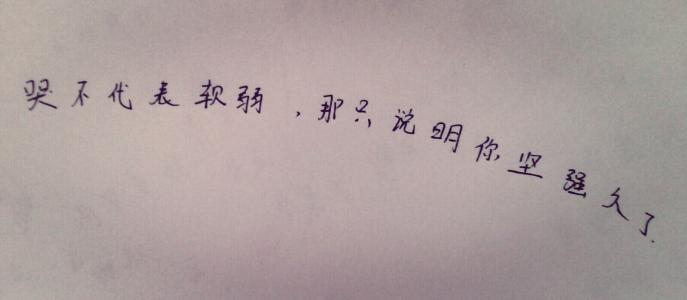 哭不代表软弱，那只说明你坚强久了.